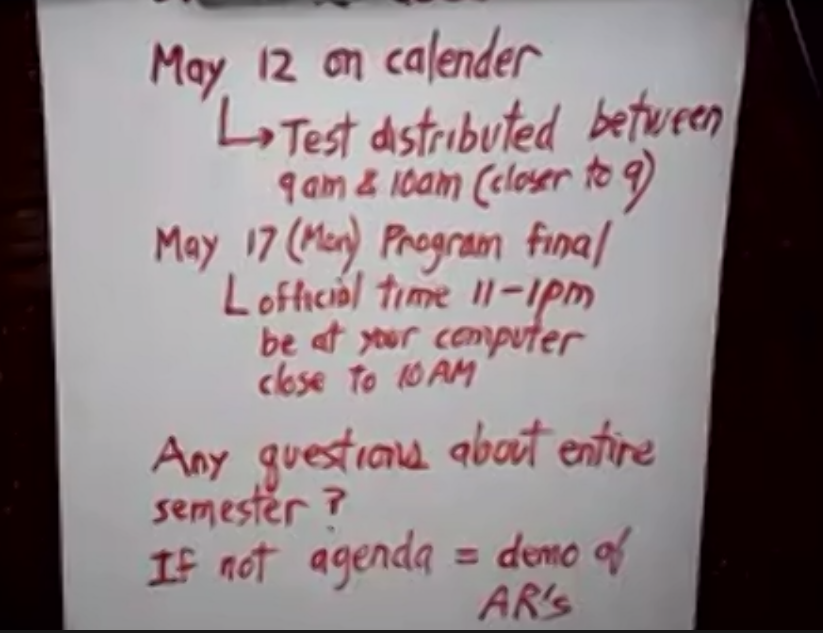 May 12 on calender
↳ Test distributed between
9am & 10am (closer to 9)
May 17 (Mon) Program final
L official time 11-1pm
be at your computer
close to 10AM
Any questions about entire
semester?
If not agenda = demo of
AR's